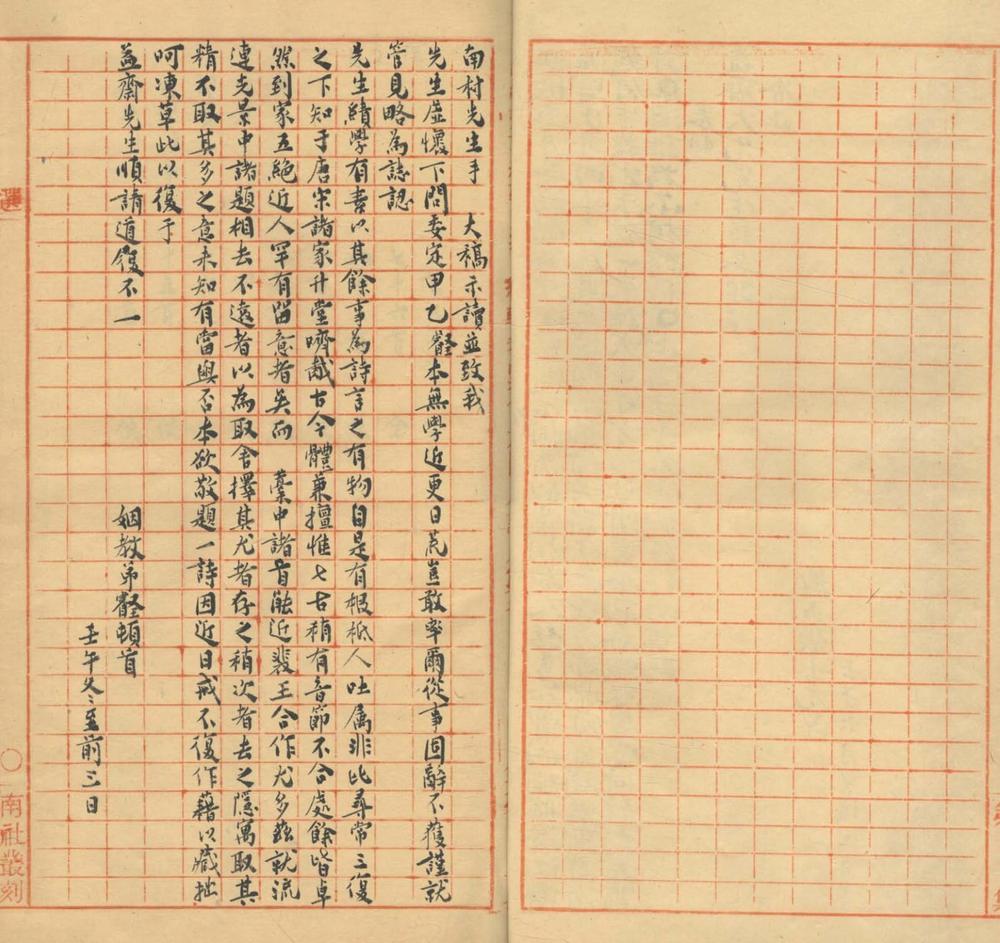 南村先生手　大稿示讀並致我
先生虛懷下問委定甲乙壑本無學近更日荒豈敢率爾從事固辭不獲謹就
管見略為誌認
先生績學有素以其餘事為詩言之有物自是有根柢人吐属非比尋常三復
之下知于唐宋諸家升堂嚌胾古今體兼擅惟七古稍有音節不合處餘皆卓
然到家五絕近人罕有留意者矣而　藁中諸首能近裴王合作尤多茲就流
連光景中諸題相去不遠者以為取舍擇其尤者存之稍次者去之隱寓取其
精不取其多之意未知有當與否本欲敬題一詩因近日戒不復作藉以藏拙
呵凍草此以復于
益齋先生順請道履不一
姻教弟壑頓首
壬午冬至前三日
選
南社叢刻